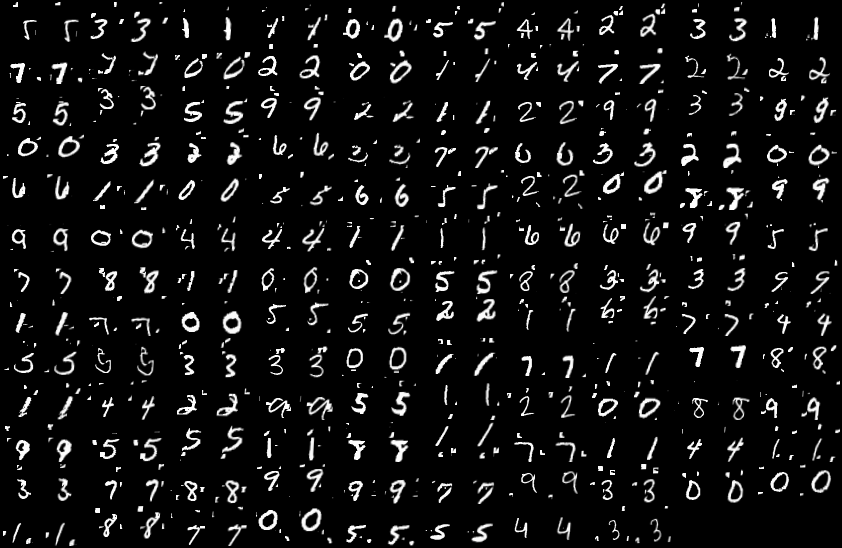 5 5 3 3 1 1 1 1 0 0 5 5 4 4 2 2 3 3 1 1
7 7 7 7 0 0 2 2 0 0 1 1 4 4 7 7 2 2 2 2
5 5 3 3 5 5 9 9 2 2 1 1 2 2 9 9 3 3 9 9
0 0 3 3 2 2 6 6 3 3 7 7 6 6 3 3 2 2 0 0
6 6 1 1 0 0 5 5 6 6 5 5 2 2 0 0 8 8 9 9
9 9 0 0 4 4 4 4 1 1 1 1 6 6 6 6 9 9 5 5
7 7 8 8 1 1 0 0 0 0 5 5 8 8 3 3 3 3 9 9
1 1 7 7 0 0 5 5 5 5 2 2 1 1 6 6 7 7 4 4
5 5 3 3 3 3 0 0 1 1 7 7 1 1 7 7 8 8
1 1 4 4 2 2 9 9 5 5 1 1 2 2 0 0 8 8 9 9
9 9 5 5 5 5 1 1 8 8 1 1 7 7 1 1 4 4 1 1
3 3 7 7 8 8 9 9 9 9 7 7 9 9 3 3 0 0 0 0
1 1 8 8 7 7 0 0 5 5 5 5 4 4 3 3